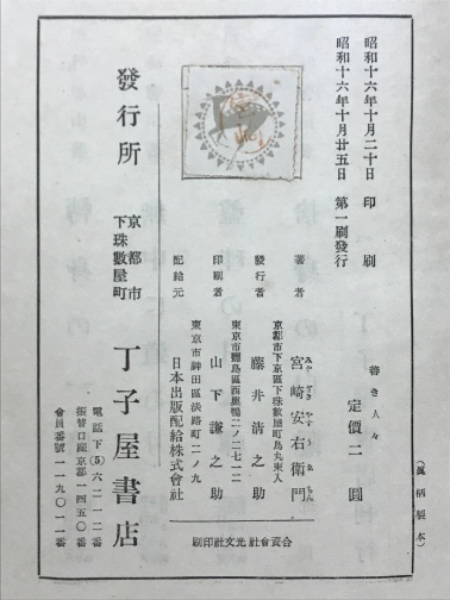 昭和十六年十月二十日 印刷
昭和十六年十月廿五日 第一刷發行
善き人々
定價二圓
(眞柄製本)
著者 宮崎安右衛門
京都市下京區下珠數屋町烏丸東入
發行者 藤井淸之助
東京市豐島區西巢鴨二ノ二七一二
印刷者 山下謙之助
東京市神田區淡路町二ノ九
配給元 日本出版配給株式會社
合資會社光文社印刷
發行所
京都市
下珠數屋町
丁子屋書店
電話下(5)六二一二番
振替口座京都一四五〇番
會員番號一一九〇一一番